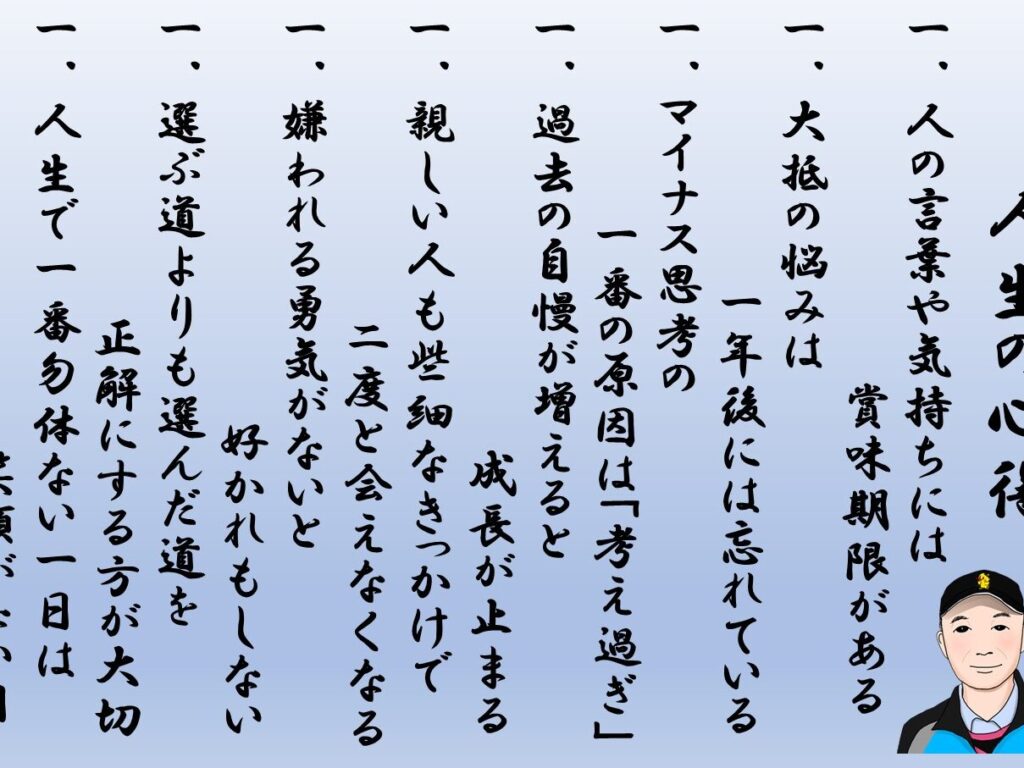 人生の心得
一、人の言葉や気持ちには
賞味期限がある
一、大抵の悩みは
一年後には忘れている
一、マイナス思考の
一番の原因は「考え過ぎ」
一、過去の自慢が増えると
成長が止まる
一、親しい人も些細なきっかけで
二度と会えなくなる
一、嫌われる勇気がないと
好かれもしない
一、選ぶ道よりも選んだ道を
正解にする方が大切
一、人生で一番勿体ない一日は
笑顔がない日